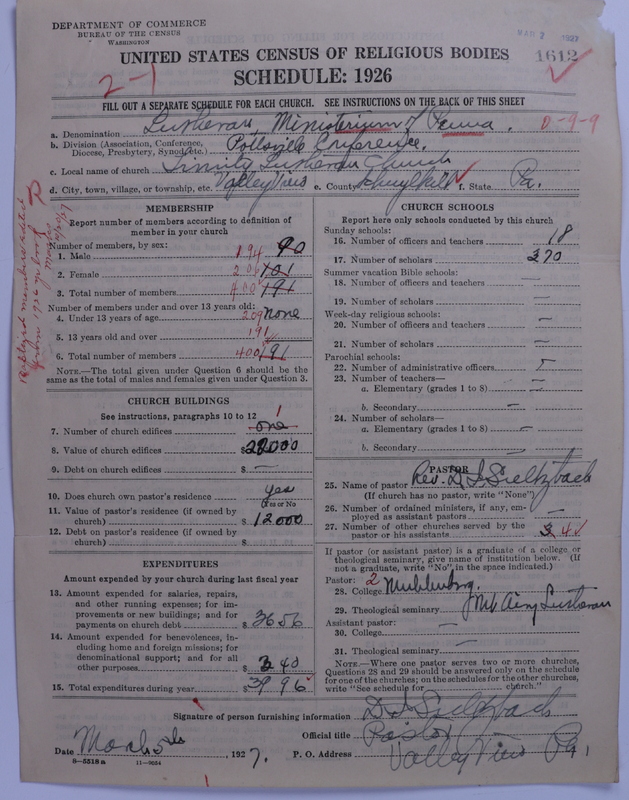 DEPARTMENT OF COMMERCE
BUREAU OF THE CENSUS
WASHINGTON
MAR 2 1927
1612
UNITED STATES CENSUS OF RELIGIOUS BODIES
SCHEDULE: 1926
2-1
FILL OUT A SEPARATE SCHEDULE FOR EACH CHURCH. SEE INSTRUCTIONS ON THE BACK OF THIS SHEET
a. Denomination Lutheran, Ministerium of Penna. D-9-9
b. Division (Association, Conference, Diocese, Presbytery, Synod, etc.) Pottsville Conference.
c. Local name of church Trinity Lutheran Church
d. City, town, village, or township, etc. Valley View e. County Schuylkill f. State Pa.
MEMBERSHIP
Report number of members according to definition of member in your church
Number of members, by sex:
1. Male 194 90
2. Female 206 101
3. Total number of members 400 191
Number of members under and over 13 years old:
4. Under 13 years of age 209 none
5. 13 years old and over 191
6. Total number of members 400 191
NOTE.—The total given under Question 6 should be the same as the total of males and females given under Question 3.
CHURCH BUILDINGS
See instructions, paragraphs 10 to 12
7. Number of church edifices one 1
8. Value of church edifices $ 22000
9. Debt on church edifices $ —
10. Does church own pastor's residence yes
(Yes or No)
11. Value of pastor's residence (if owned by church) $ 12000
12. Debt on pastor's residence (if owned by church) $
EXPENDITURES
Amount expended by your church during last fiscal year
13. Amount expended for salaries, repairs, and other running expenses; for improvements or new buildings; and for payments on church debt $ 3656
14. Amount expended for benevolences, including home and foreign missions; for denominational support; and for all other purposes. $ 340
15. Total expenditures during year $ 3996
CHURCH SCHOOLS
Report here only schools conducted by this church
Sunday schools:
16. Number of officers and teachers 18
17. Number of scholars 370
Summer vacation Bible schools:
18. Number of officers and teachers —
19. Number of scholars —
Week-day religious schools:
20. Number of officers and teachers —
21. Number of scholars —
Parochial schools:
22. Number of administrative officers
23. Number of teachers—
a. Elementary (grades 1 to 8) —
b. Secondary —
24. Number of scholars—
a. Elementary (grades 1 to 8) —
b. Secondary —
PASTOR
25. Name of pastor Rev. D. I. Sultzbach
(If church has no pastor, write "None")
26. Number of ordained ministers, if any, employed as assistant pastors —
27. Number of other churches served by the pastor or his assistants 3 4
If pastor (or assistant pastor) is a graduate of a college or theological seminary, give name of institution below. (If not a graduate, write "No" in the space indicated.)
Pastor: 2
28. College Muhlenberg.
29. Theological seminary Mt Airy Lutheran
Assistant pastor:
30. College —
31. Theological seminary —
NOTE.—Where one pastor serves two or more churches, Questions 28 and 29 should be answered only on the schedule for one of the churches; on the schedules for the other churches, write "See schedule for church."
Signature of person furnishing information D. I. Sultzbach
Official title Pastor
Date March, 1927. P. O. Address Valley View Pa
8—5518a 11—9054